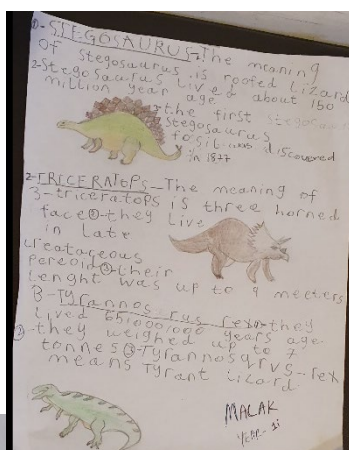 1- STEGOSAURUS-The meaning
Of Stegosaurus is roofed lizard
2-Stegosaurus Lived about 150
million year age
the first Stegosau
Stegosaurus
fossil was discovered
in 1877
2-TRICERATOPS-The meaning of
3-triceratops is three horned
face②-they Live
in Late
creataceous
pereoid③their
Lenght was up to 9 meeters
3-Tyrannos rus rex they
Lived 65,000,000 years age.
②-they weighed up to 7
tonnes③-Tyrannosqrvs-rex
means Tyrant Lizard
MALAK
YEAR-1i